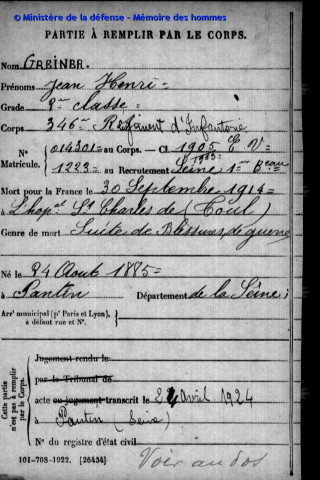 © Ministère de la défense - Mémoire des hommes
PARTIE À REMPLIR PAR LE CORPS.
Nom GABINBA.
Prénoms Jean Henri
Grade 2me classe
Corps 346e Régiment d'Infanterie
N° 014301 au Corps. — Cl. 1905 E V
Matricule. 1223 au Recrutement Seine 1er Beau
1903
Mort pour la France le 30 Septembre 1914
à L'hopal St Charles de (Toul)
Genre de mort Suite de Blessures de guerre
Né le 24 Août 1885
à Pantin Département de la Seine
Arrt municipal (pr Paris et Lyon), à défaut rue et N°.
Cette partie n'est pas à remplir par le Corps.
Jugement rendu le
par le Tribunal de
acte ou jugement transcrit le 24 Avril 1924
à Pantin (Seine)
N° du registre d'état civil
101-708-1922. [26434]
Voir au dos